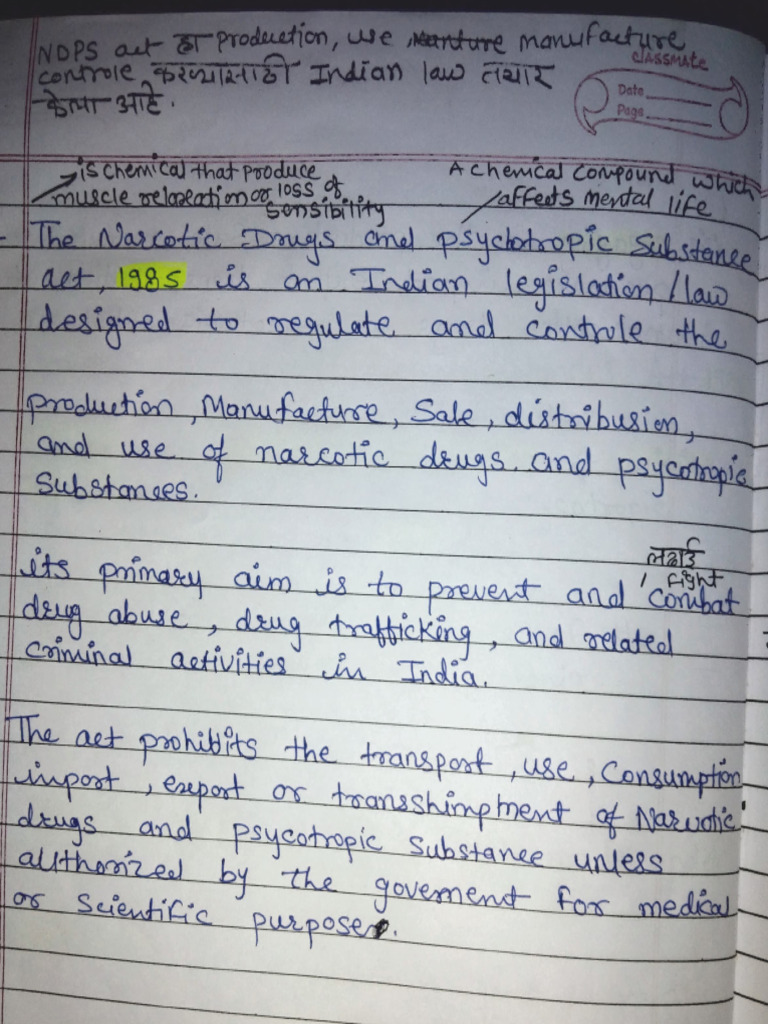 NDPS act हा production, use manufacture
controle करण्यासाठी Indian law तयार
केला आहे.
CLASSMATE
Date
Page
is chemical that produce
muscle relaxation or loss of
sensibility
A chemical compound which
affects mental life
The Narcotic Drugs and psychotropic Substance
act, 1985 is an Indian legislation / law
designed to regulate and controle the
production, Manufacture, Sale, distribusion,
and use of narcotic drugs and psycotropic
Substances.
लढाई
fight
its primary aim is to prevent and combat
drug abuse, drug trafficking, and related
criminal activities in India.
The act prohibits the transport, use, Consumption
import, export or transshimpment of Narcotic
drugs and psycotropic Substance unless
authorized by the goverment for medical
or scientific purpose.